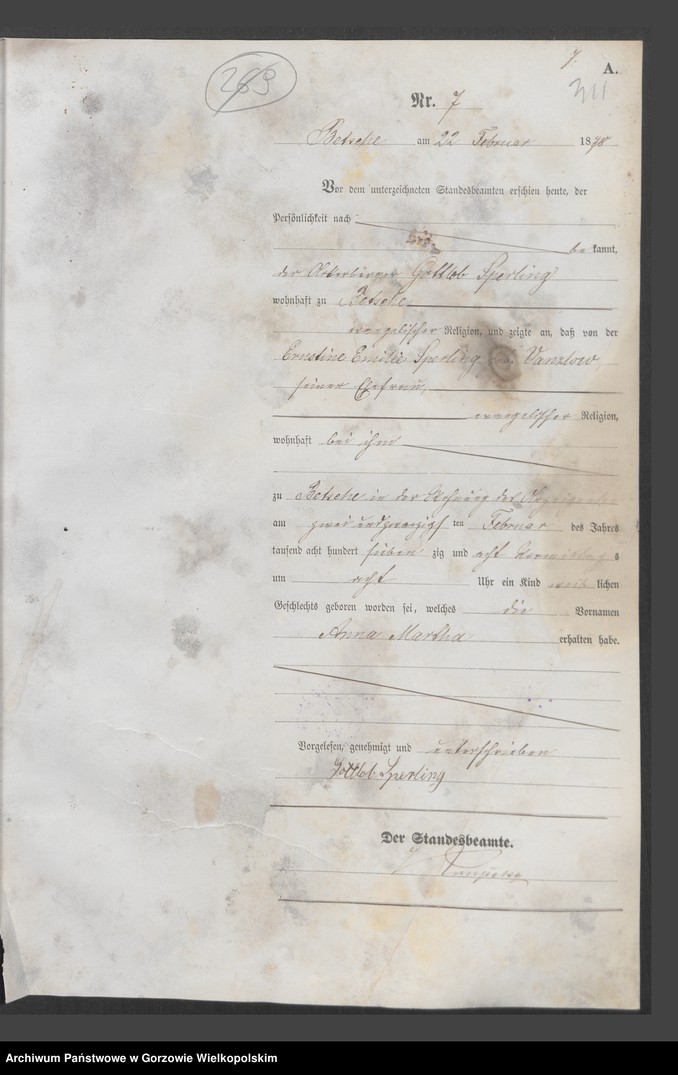 7.
A.
263
311
Nr. 7
Betsche am 22 Februar 1878
Vor dem unterzeichneten Standesbeamten erschien heute, der
Persönlichkeit nach
be kannt,
der Ackerbürger Gottlob Sperling
wohnhaft zu Betsche
evangelischer Religion, und zeigte an, daß von der
Ernstine Emilie Sperling geb. Vanzlow,
seiner Ehefrau,
evangelischer Religion,
wohnhaft bei ihm
zu Betsche in der Wohnung des Anzeigenden
am zwei und zwanzigs ten Februar des Jahres
tausend acht hundert sieben zig und acht Vormittag s
um acht Uhr ein Kind weib lichen
Geschlechts geboren worden sei, welches die Vornamen
Anna Martha erhalten habe.
Vorgelesen, genehmigt und unterschrieben
Gottlob Sperling
Der Standesbeamte.
Archiwum Państwowe w Gorzowie Wielkopolskim